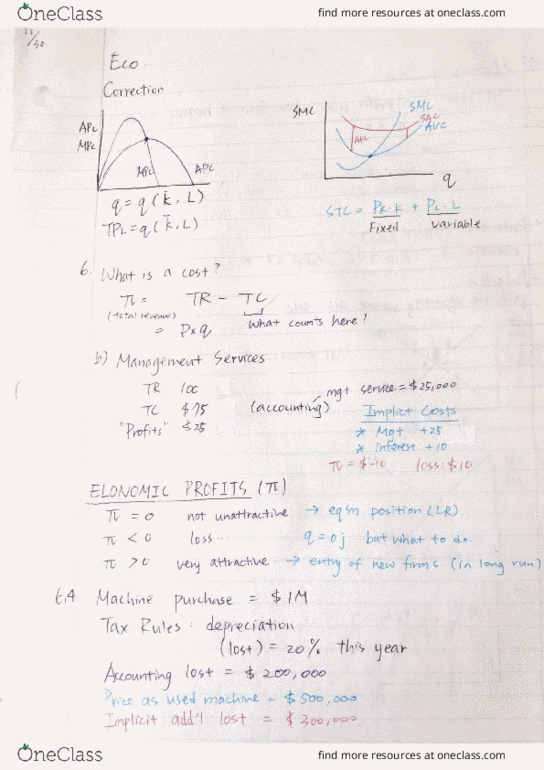 OneClass find more resources at oneclass.com
11/30
Eco
Correction
APL
MPL
MPL
APL
q = q(k̄, L)
TPL = q(k̄, L)
SMC
SMC
SAC
AVC
AFC
q
STC = Pk·K + PL·L
Fixed variable
6. What is a cost?
π = TR - TC
(total revenues)
= P×q What counts here?
b) Management Services
TR 100
TC $75 (accounting)
"Profits" $25
mgt service = $25,000
Implicit Costs
* Mgt +25
* interest +10
π = $-10 loss: $10
ELONOMIC PROFITS (π)
π = 0 not unattractive → eq'm position (LR)
π < 0 loss... q = 0j but what to do
π > 0 very attractive → entry of new firms (in long run)
6.4 Machine purchase = $1M
Tax Rules: depreciation
(lost) = 20% this year
Accounting lost = $200,000
Prize as used machine = $500,000
Implicit add'l lost = $300,000
OneClass find more resources at oneclass.com